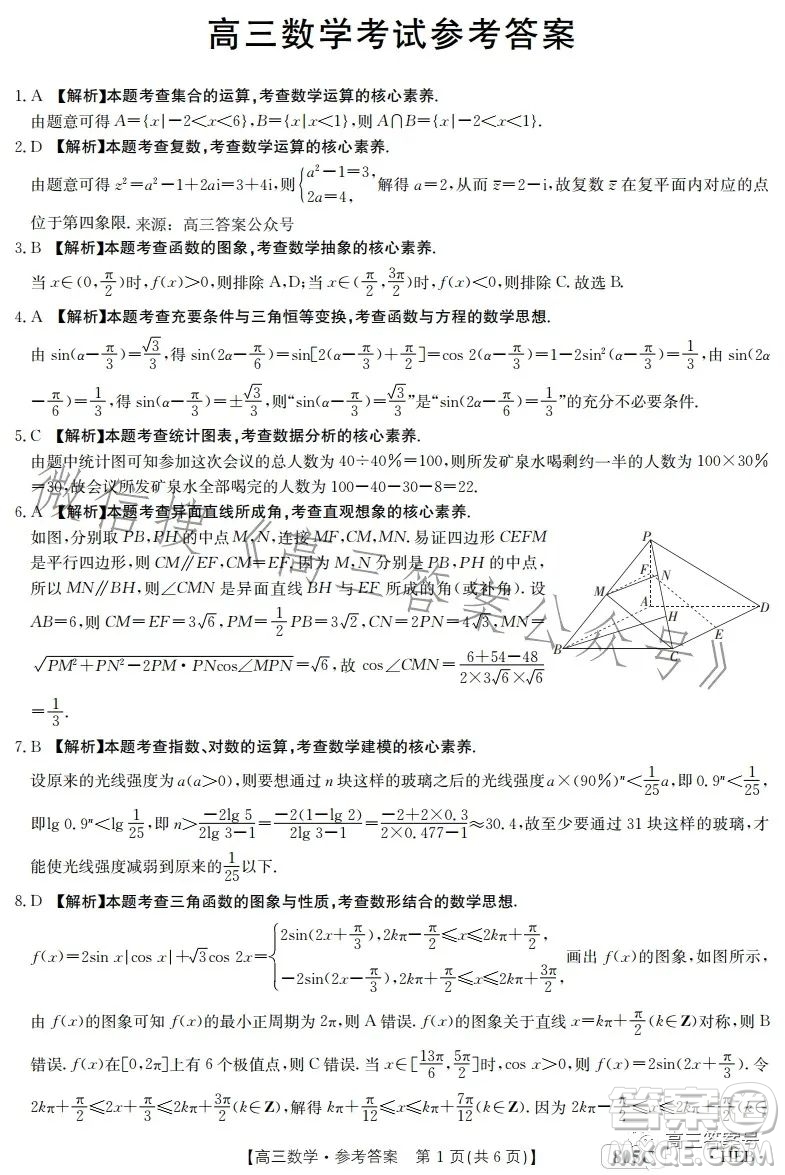 高三数学考试参考答案
1. A 【解析】本题考查集合的运算,考查数学运算的核心素养.
由题意可得 A={x|-2<x<6},B={x|x<1},则 A∩B={x|-2<x<1}.
2. D 【解析】本题考查复数,考查数学运算的核心素养.
由题意可得 z²=a²-1+2ai=3+4i,则{a²-1=3, 2a=4, 解得 a=2,从而 z̄=2-i,故复数 z̄ 在复平面内对应的点
位于第四象限. 来源：高三答案公众号
3. B 【解析】本题考查函数的图象,考查数学抽象的核心素养.
当 x∈(0,π/2)时,f(x)>0,则排除 A,D;当 x∈(π/2,3π/2)时,f(x)<0,则排除 C.故选 B.
4. A 【解析】本题考查充要条件与三角恒等变换,考查函数与方程的数学思想.
由 sin(α-π/3)=√3/3,得 sin(2α-π/6)=sin[2(α-π/3)+π/2]=cos 2(α-π/3)=1-2sin²(α-π/3)=1/3,由 sin(2α
-π/6)=1/3,得 sin(α-π/3)=±√3/3,则“sin(α-π/3)=√3/3”是“sin(2α-π/6)=1/3”的充分不必要条件.
5. C 【解析】本题考查统计图表,考查数据分析的核心素养.
由题中统计图可知参加这次会议的总人数为 40÷40%=100,则所发矿泉水喝剩约一半的人数为 100×30%
=30,故会议所发矿泉水全部喝完的人数为 100-40-30-8=22.
6. A 【解析】本题考查异面直线所成角,考查直观想象的核心素养.
如图,分别取 PB,PH 的中点 M,N,连接 MF,CM,MN.易证四边形 CEFM
是平行四边形,则 CM∥EF,CM=EF.因为 M,N 分别是 PB,PH 的中点,
所以 MN∥BH,则∠CMN 是异面直线 BH 与 EF 所成的角(或补角). 设
AB=6,则 CM=EF=3√6,PM=1/2PB=3√2,CN=2PN=4√3,MN=
√(PM²+PN²-2PM·PNcos∠MPN)=√6,故 cos∠CMN=(6+54-48)/(2×3√6×√6)
=1/3.
P
F
N
M
A
D
H
E
B
C
7. B 【解析】本题考查指数、对数的运算,考查数学建模的核心素养.
设原来的光线强度为 a(a>0),则要想通过 n 块这样的玻璃之后的光线强度 a×(90%)ⁿ<1/25a,即 0.9ⁿ<1/25,
即lg 0.9ⁿ<lg 1/25,即 n>(-2lg 5)/(2lg 3-1)=(-2(1-lg 2))/(2lg 3-1)=(-2+2×0.3)/(2×0.477-1)≈30.4,故至少要通过 31 块这样的玻璃,才
能使光线强度减弱到原来的1/25以下.
8. D 【解析】本题考查三角函数的图象与性质,考查数形结合的数学思想.
f(x)=2sin x|cos x|+√3cos 2x={2sin(2x+π/3),2kπ-π/2≤x≤2kπ+π/2, -2sin(2x-π/3),2kπ+π/2≤x≤2kπ+3π/2, 画出 f(x)的图象,如图所示,
由 f(x)的图象可知 f(x)的最小正周期为 2π,则 A 错误. f(x)的图象关于直线 x=kπ+π/2(k∈Z)对称,则 B
错误. f(x)在[0,2π]上有 6 个极值点,则 C 错误.当 x∈[13π/6,5π/2]时,cos x>0,则 f(x)=2sin(2x+π/3). 令
2kπ+π/2≤2x+π/3≤2kπ+3π/2(k∈Z),解得 kπ+π/12≤x≤kπ+7π/12(k∈Z). 因为 2kπ-π/2≤x≤2kπ+π/2
【高三数学·参考答案 第 1 页(共 6 页)】
805C·HEB·
微信搜《高三答案公众号》
高三答案号